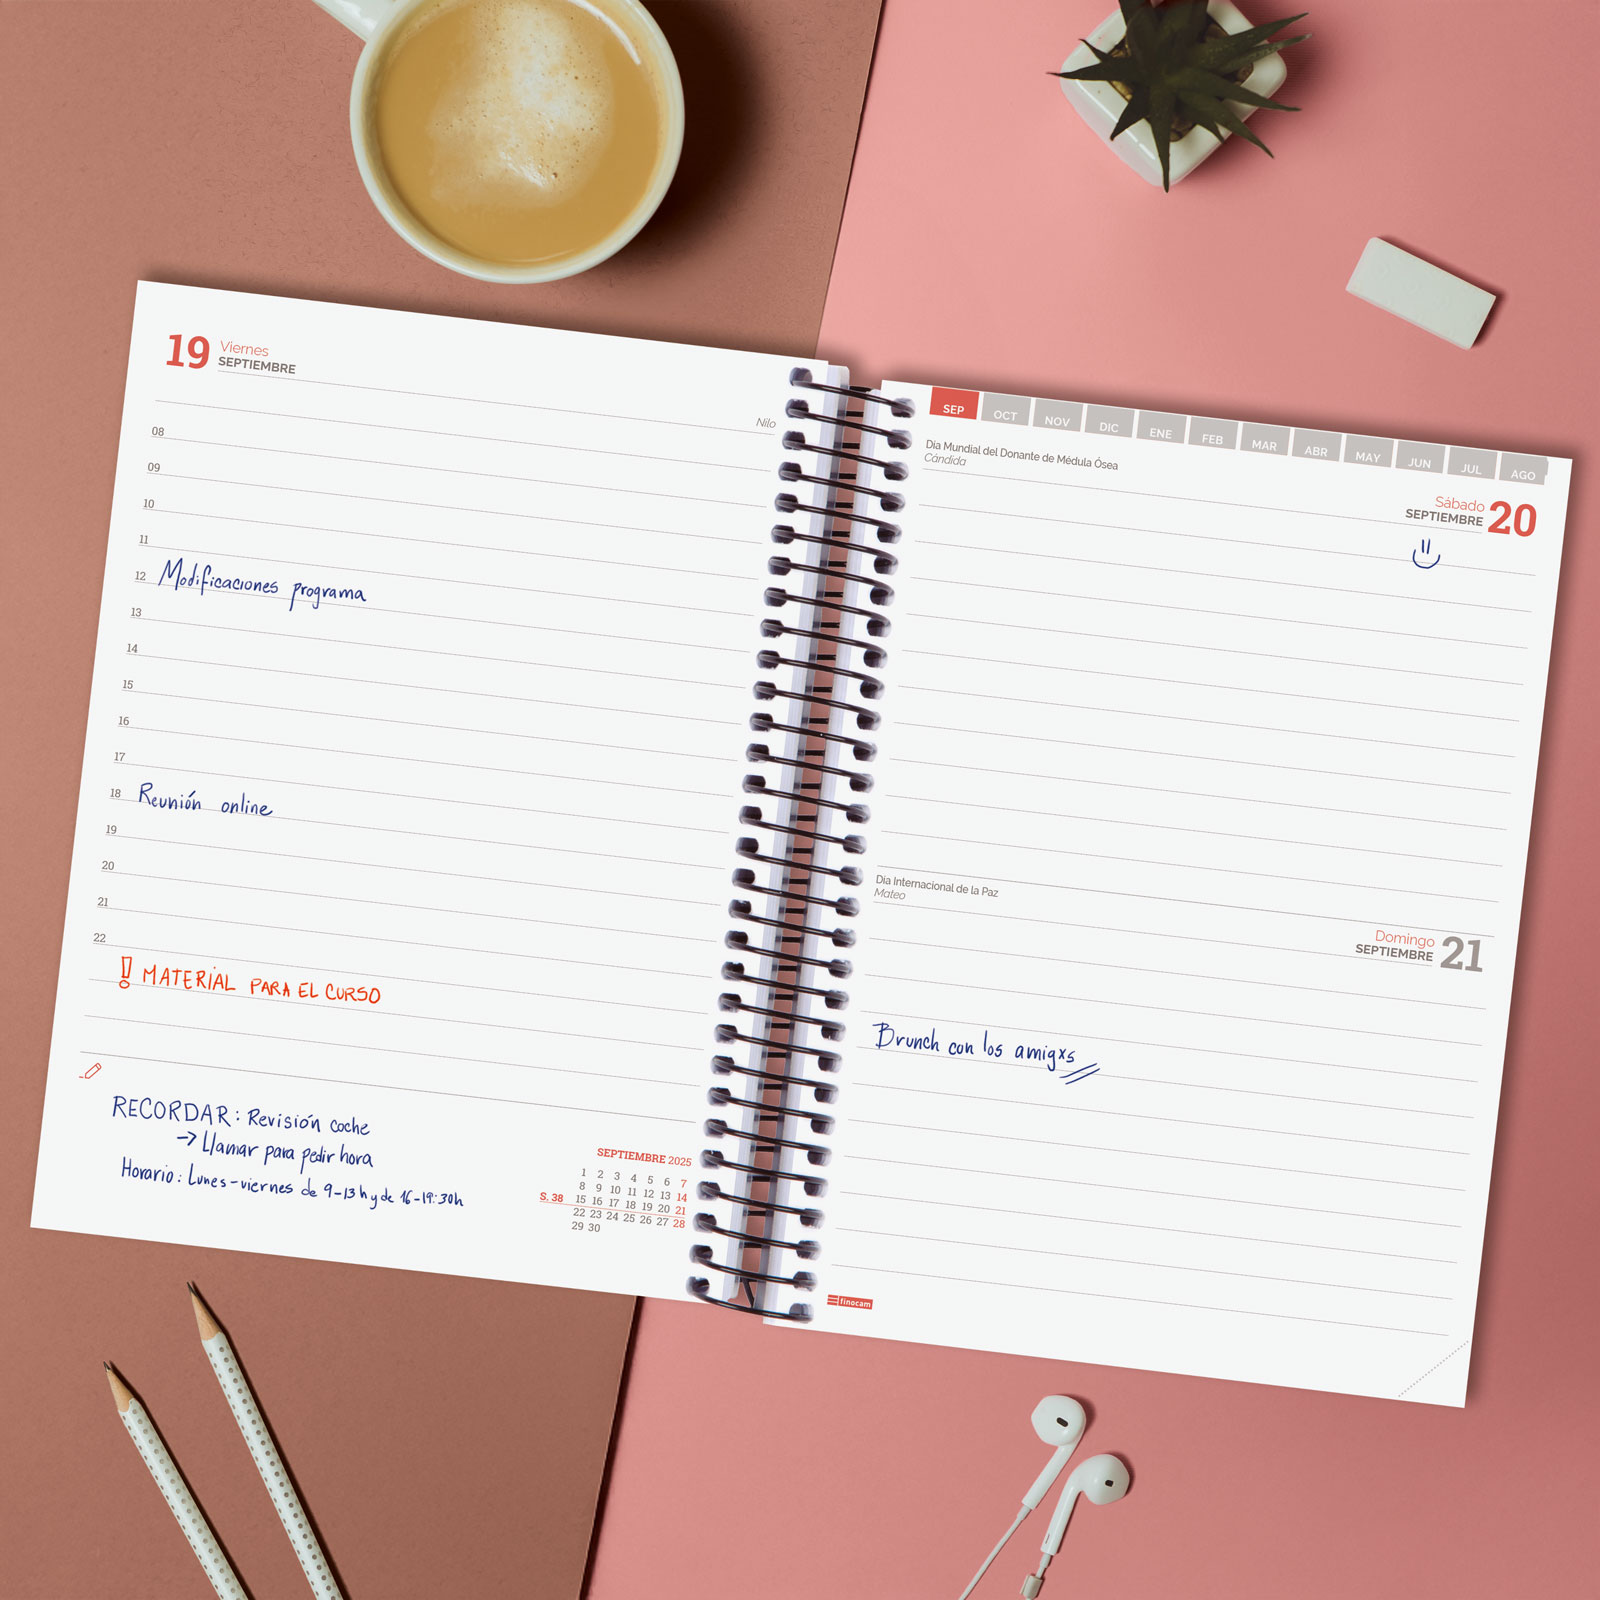 19 Viernes
SEPTIEMBRE
Nilo
08
09
10
11
12 Modificaciones programa
13
14
15
16
17
18 Reunión online
19
20
21
22
! MATERIAL PARA EL CURSO
RECORDAR: Revisión coche
→ Llamar para pedir hora
Horario: Lunes-viernes de 9-13h y de 16-19:30h
SEPTIEMBRE 2025
1 2 3 4 5 6 7
8 9 10 11 12 13 14
S. 38 15 16 17 18 19 20 21
22 23 24 25 26 27 28
29 30
SEP OCT NOV DIC ENE FEB MAR ABR MAY JUN JUL AGO
Día Mundial del Donante de Médula Ósea
Cándida
Sábado
SEPTIEMBRE 20
Día Internacional de la Paz
Mateo
Domingo
SEPTIEMBRE 21
Brunch con los amigxs
finocam